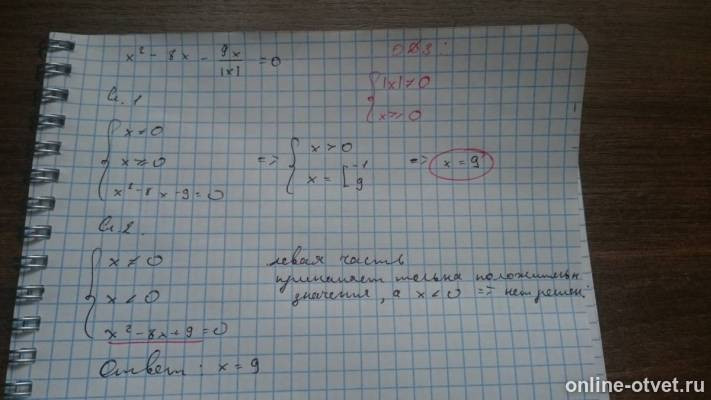 x² - 8x - 9x/|x| = 0
ОДЗ:
{ |x| ≠ 0
x ≥ 0
Сл. 1
{ x ≠ 0
x ≥ 0
x² - 8x - 9 = 0
=> { x > 0
x = [ -1
9
=> x = 9
Сл. 2.
{ x ≠ 0
x < 0
x² - 8x + 9 = 0
левая часть
принимает только положительн
значения, а x < 0 => нет решен.
Ответ: x = 9
online-otvet.ru